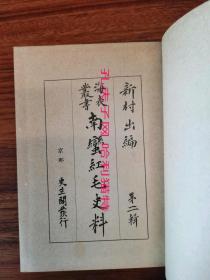 新村出編
海表叢書
南蠻紅毛史料
第二輯
京都 更生閣發行
孔夫子网